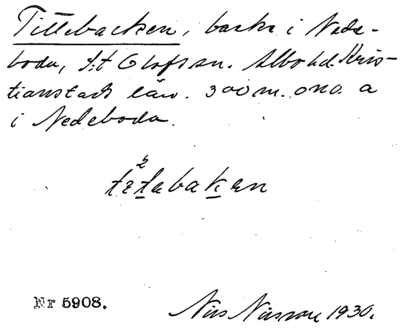 Tittebacken, backe i Nede-
boda, S:t Olofs sn. Albo hd. Kris-
tianstads län. 300 m. ono. a
i Nedeboda.
2
titabakan
Nr 5908.
Nils Nilsson 1930.